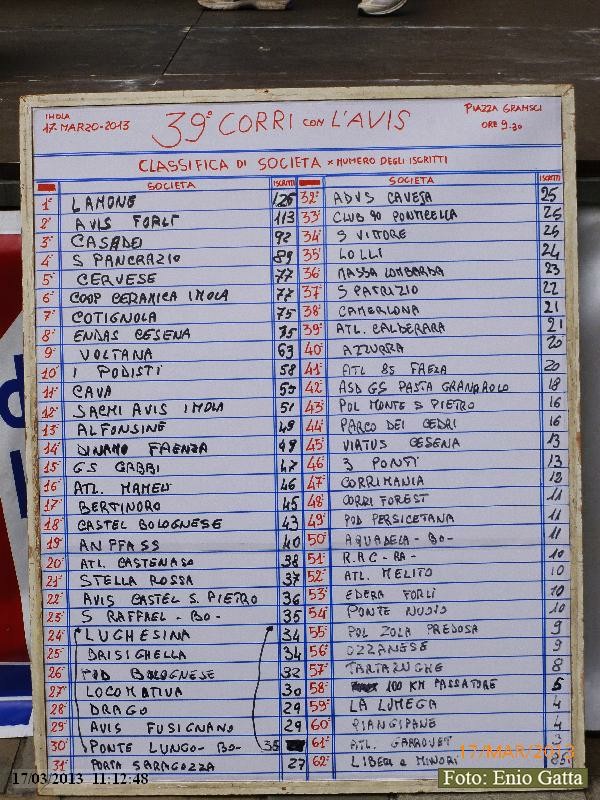 IMOLA
17-MARZO-2013
39° CORRI CON L'AVIS
PIAZZA GRAMSCI
ORE 9.30
CLASSIFICA DI SOCIETA x NUMERO DEGLI ISCRITTI
SOCIETA ISCRITTI
1° LAMONE 126
2° AVIS FORLÌ 113
3° CASADEO 92
4° S PANCRAZIO 89
5° CERVESE 77
6° COOP CERAMICA IMOLA 77
7° COTIGNOLA 75
8° ENDAS CESENA 75
9° VOLTANA 63
10° I PODISTI 58
11° CAVA 55
12° SACMI AVIS IMOLA 51
13° ALFONSINE 49
14° DINAMO FAENZA 49
15° GS GABBI 47
16° ATL. MAMELI 46
17° BERTINORO 45
18° CASTEL BOLOGNESE 43
19° ANFFASS 40
20° ATL. CASTENASO 38
21° STELLA ROSSA 37
22° AVIS CASTEL S. PIETRO 36
23° S RAFFAEL - BO - 35
24° LUGHESINA 34
25° BRISIGHELLA 34
26° POD BOLOGNESE 32
27° LOCOMOTIVA 30
28° DRAGO 29
29° AVIS FUSIGNANO 29
30° PONTE LUNGO - BO - 35
31° PORTA SARAGOZZA 27
SOCIETA ISCRITTI
32° ADVS CAVEZA 25
33° CLUB 90 PONTICELLA 25
34° S VITTORE 25
35° LOLLI 24
36° MASSA LOMBARDA 23
37° S PATRIZIO 22
38° CAMERLONA 21
39° ATL. CALDERARA 21
40° AZZURRA 20
41° ATL 85 FAEZA 20
42° ASD GS PASTA GRANAROLO 18
43° POL MONTE S PIETRO 16
44° PARCO DEI CEDRI 16
45° VIRTUS CESENA 13
46° 3 PONTI 13
47° CORRIMANIA 12
48° CORRI FOREST 11
49° POD PERSICETANA 11
50° AQUADELA - BO - 11
51° R.A.C - RA - 10
52° ATL. MELITO 10
53° EDERA FORLÌ 10
54° PONTE NUOVO 10
55° POL ZOLA PREDOSA 9
56° OZZANESE 9
57° TARTARUGHE 8
58° 100 KM PASSATORE 5
59° LA LUMEGA 4
60° PIANGIPANE 4
61° ATL. 3
62° LIBERI e MINORI 85
17/MAR/2013
17/03/2013 11:12:48
Foto: Enio Gatta